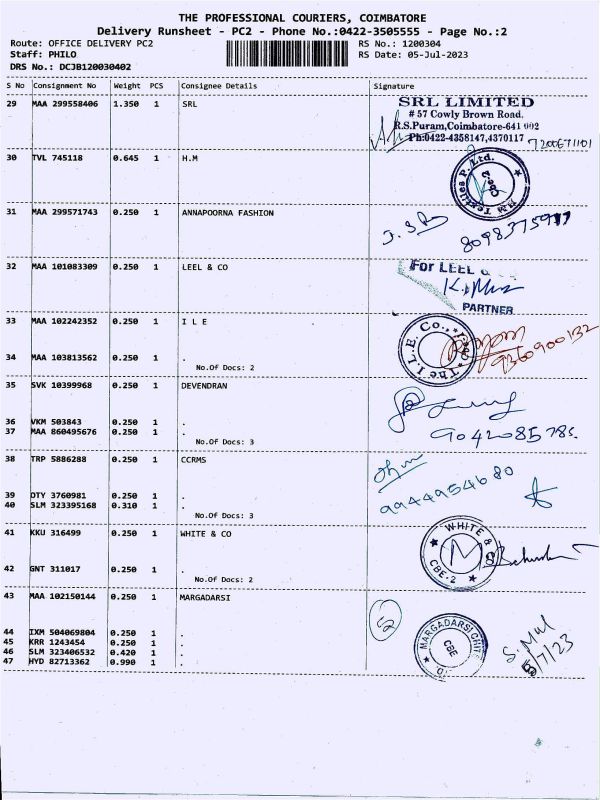 THE PROFESSIONAL COURIERS, COIMBATORE
Delivery Runsheet - PC2 - Phone No.:0422-3505555 - Page No.:2
Route: OFFICE DELIVERY PC2 RS No.: 1200304
Staff: PHILO RS Date: 05-Jul-2023
DRS No.: DCJB120030402
S No Consignment No Weight PCS Consignee Details Signature
29 MAA 299558406 1.350 1 SRL
SRL LIMITED
# 57 Cowly Brown Road.
R.S.Puram,Coimbatore-641 002
Ph:0422-4358147,4370117
7200671101
30 TVL 745118 0.645 1 H.M
H.M Textiles P. Ltd.
31 MAA 299571743 0.250 1 ANNAPOORNA FASHION
32 MAA 101083309 0.250 1 LEEL & CO
For LEEL &
PARTNER
33 MAA 102242352 0.250 1 I L E
The I.L.E. Co.,
34 MAA 103813562 0.250 1 .
No.Of Docs: 2
9360900132
35 SVK 10399968 0.250 1 DEVENDRAN
36 VKM 503843 0.250 1 .
37 MAA 860495676 0.250 1 .
No.Of Docs: 3
9042085785.
38 TRP 5886288 0.250 1 CCRMS
39 DTY 3760981 0.250 1 .
40 SLM 323395168 0.310 1 .
No.Of Docs: 3
9944954680
41 KKU 316499 0.250 1 WHITE & CO
WHITE &
CBE-2
42 GNT 311017 0.250 1 .
No.Of Docs: 2
43 MAA 102150144 0.250 1 MARGADARSI
5
MARGADARSI CHIT
CBE
44 IXM 504069804 0.250 1 .
45 KRR 1243454 0.250 1 .
46 SLM 323406532 0.420 1 .
47 HYD 82713362 0.990 1 .